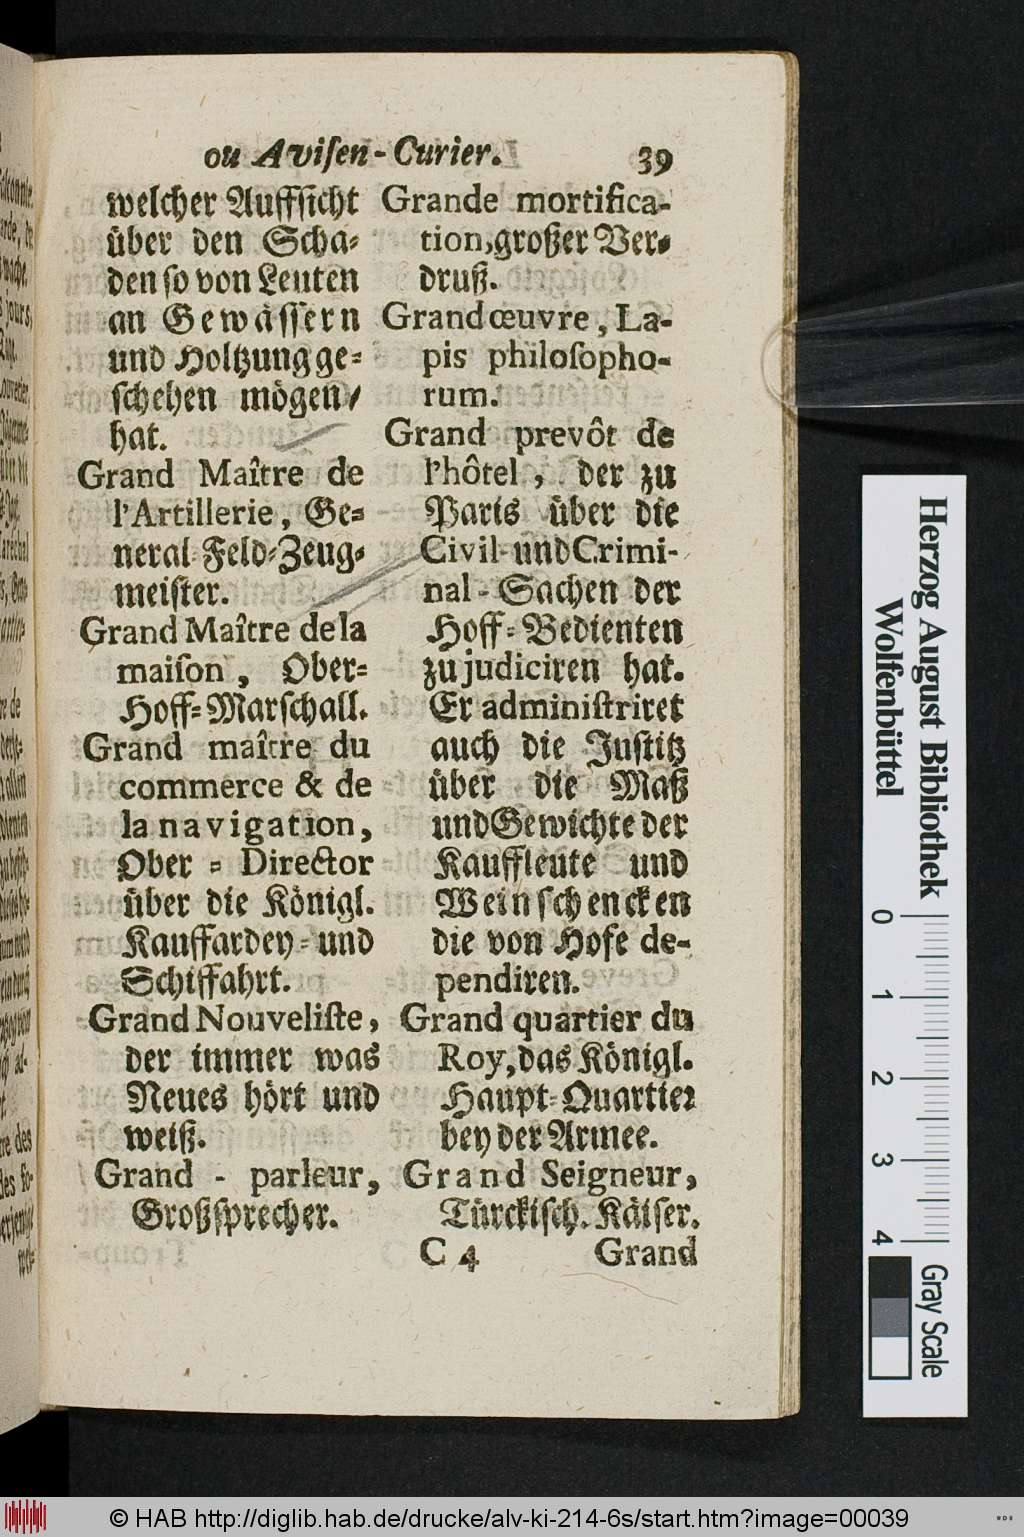 ou Aviſen-Curier. 39
welcher Auffſicht
über den Scha⸗
den ſo von Leuten
an Gewäſſern
und Holtzung ge⸗
ſchehen mögen/
hat.
Grand Maître de
l'Artillerie, Ge⸗
neral-Feld⸗Zeug⸗
meiſter.
Grand Maître de la
maiſon, Ober⸗
Hoff⸗Marſchall.
Grand maître du
commerce & de
la navigation,
Ober⸗Director
über die Königl.
Kauffardey⸗und
Schiffahrt.
Grand Nouveliſte,
der immer was
Neues hört und
weiß.
Grand - parleur,
Großſprecher.
Grande mortifica-
tion, großer Ver⸗
druß.
Grand œuvre, La-
pis philoſopho-
rum.
Grand prevôt de
l'hôtel, der zu
Paris über die
Civil-und Crimi-
nal-Sachen der
Hoff⸗Bedienten
zu judiciren hat.
Er adminiſtriret
auch die Juſtitz
über die Maß
und Gewichte der
Kauffleute und
Weinſchencken
die von Hofe de-
pendiren.
Grand quartier du
Roy, das Königl.
Haupt⸗Quartier
bey der Armee.
Grand Seigneur,
Türckiſch. Käiſer.
C 4 Grand
Herzog August Bibliothek
Wolfenbüttel
0 1 2 3 4
Gray Scale
© HAB http://diglib.hab.de/drucke/alv-ki-214-6s/start.htm?image=00039